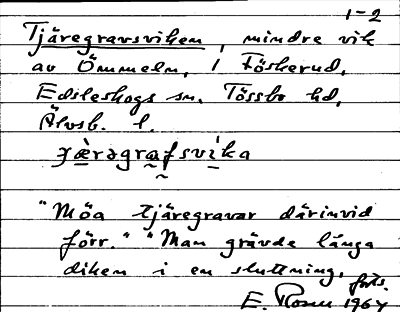 1-2
Tjäregravsviken, mindre vik
av Ömmeln, i Föskerud,
Edsleskogs sn. Tössbo hd,
Älvsb. l.
"Möa tjäregravar därinvid
förr." "Man grävde långa
diken i en sluttning.
forts.
E. Rosén 1964